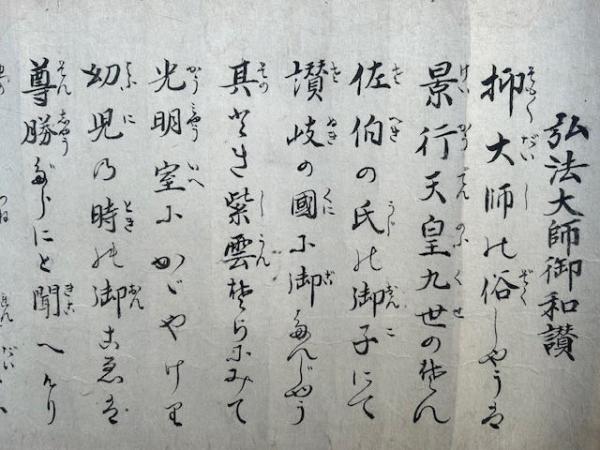 弘法大師御和讃
抑大師の俗しやうは
景行天皇九世のそん
佐伯の氏の御子にて
讃岐の國に御たんじやう
其とき紫雲そらにみて
光明室にかゞやけり
幼児の時の御こゑは
尊勝だらにと聞へけり